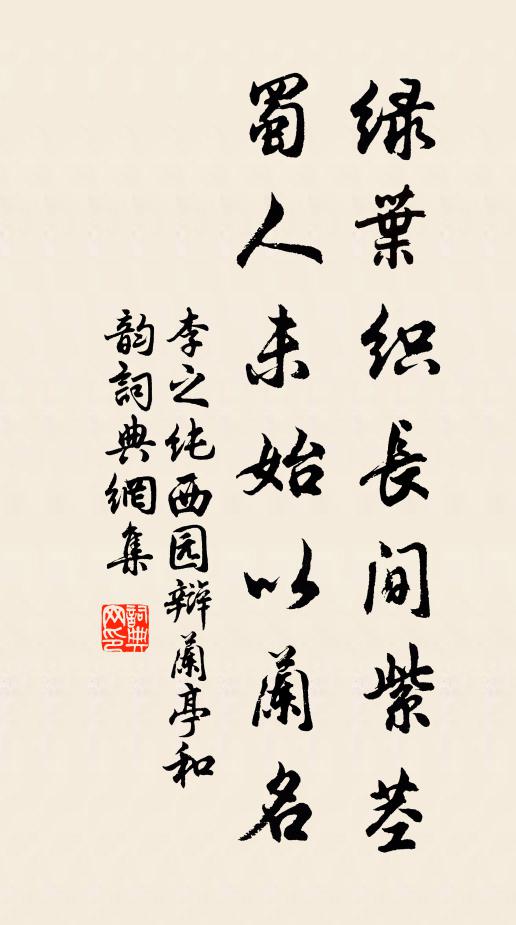 绿葉织長间紫茎
蜀人未始以蘭名
李之纯西园辩蘭亭和
韵詞典網集
詞典網印